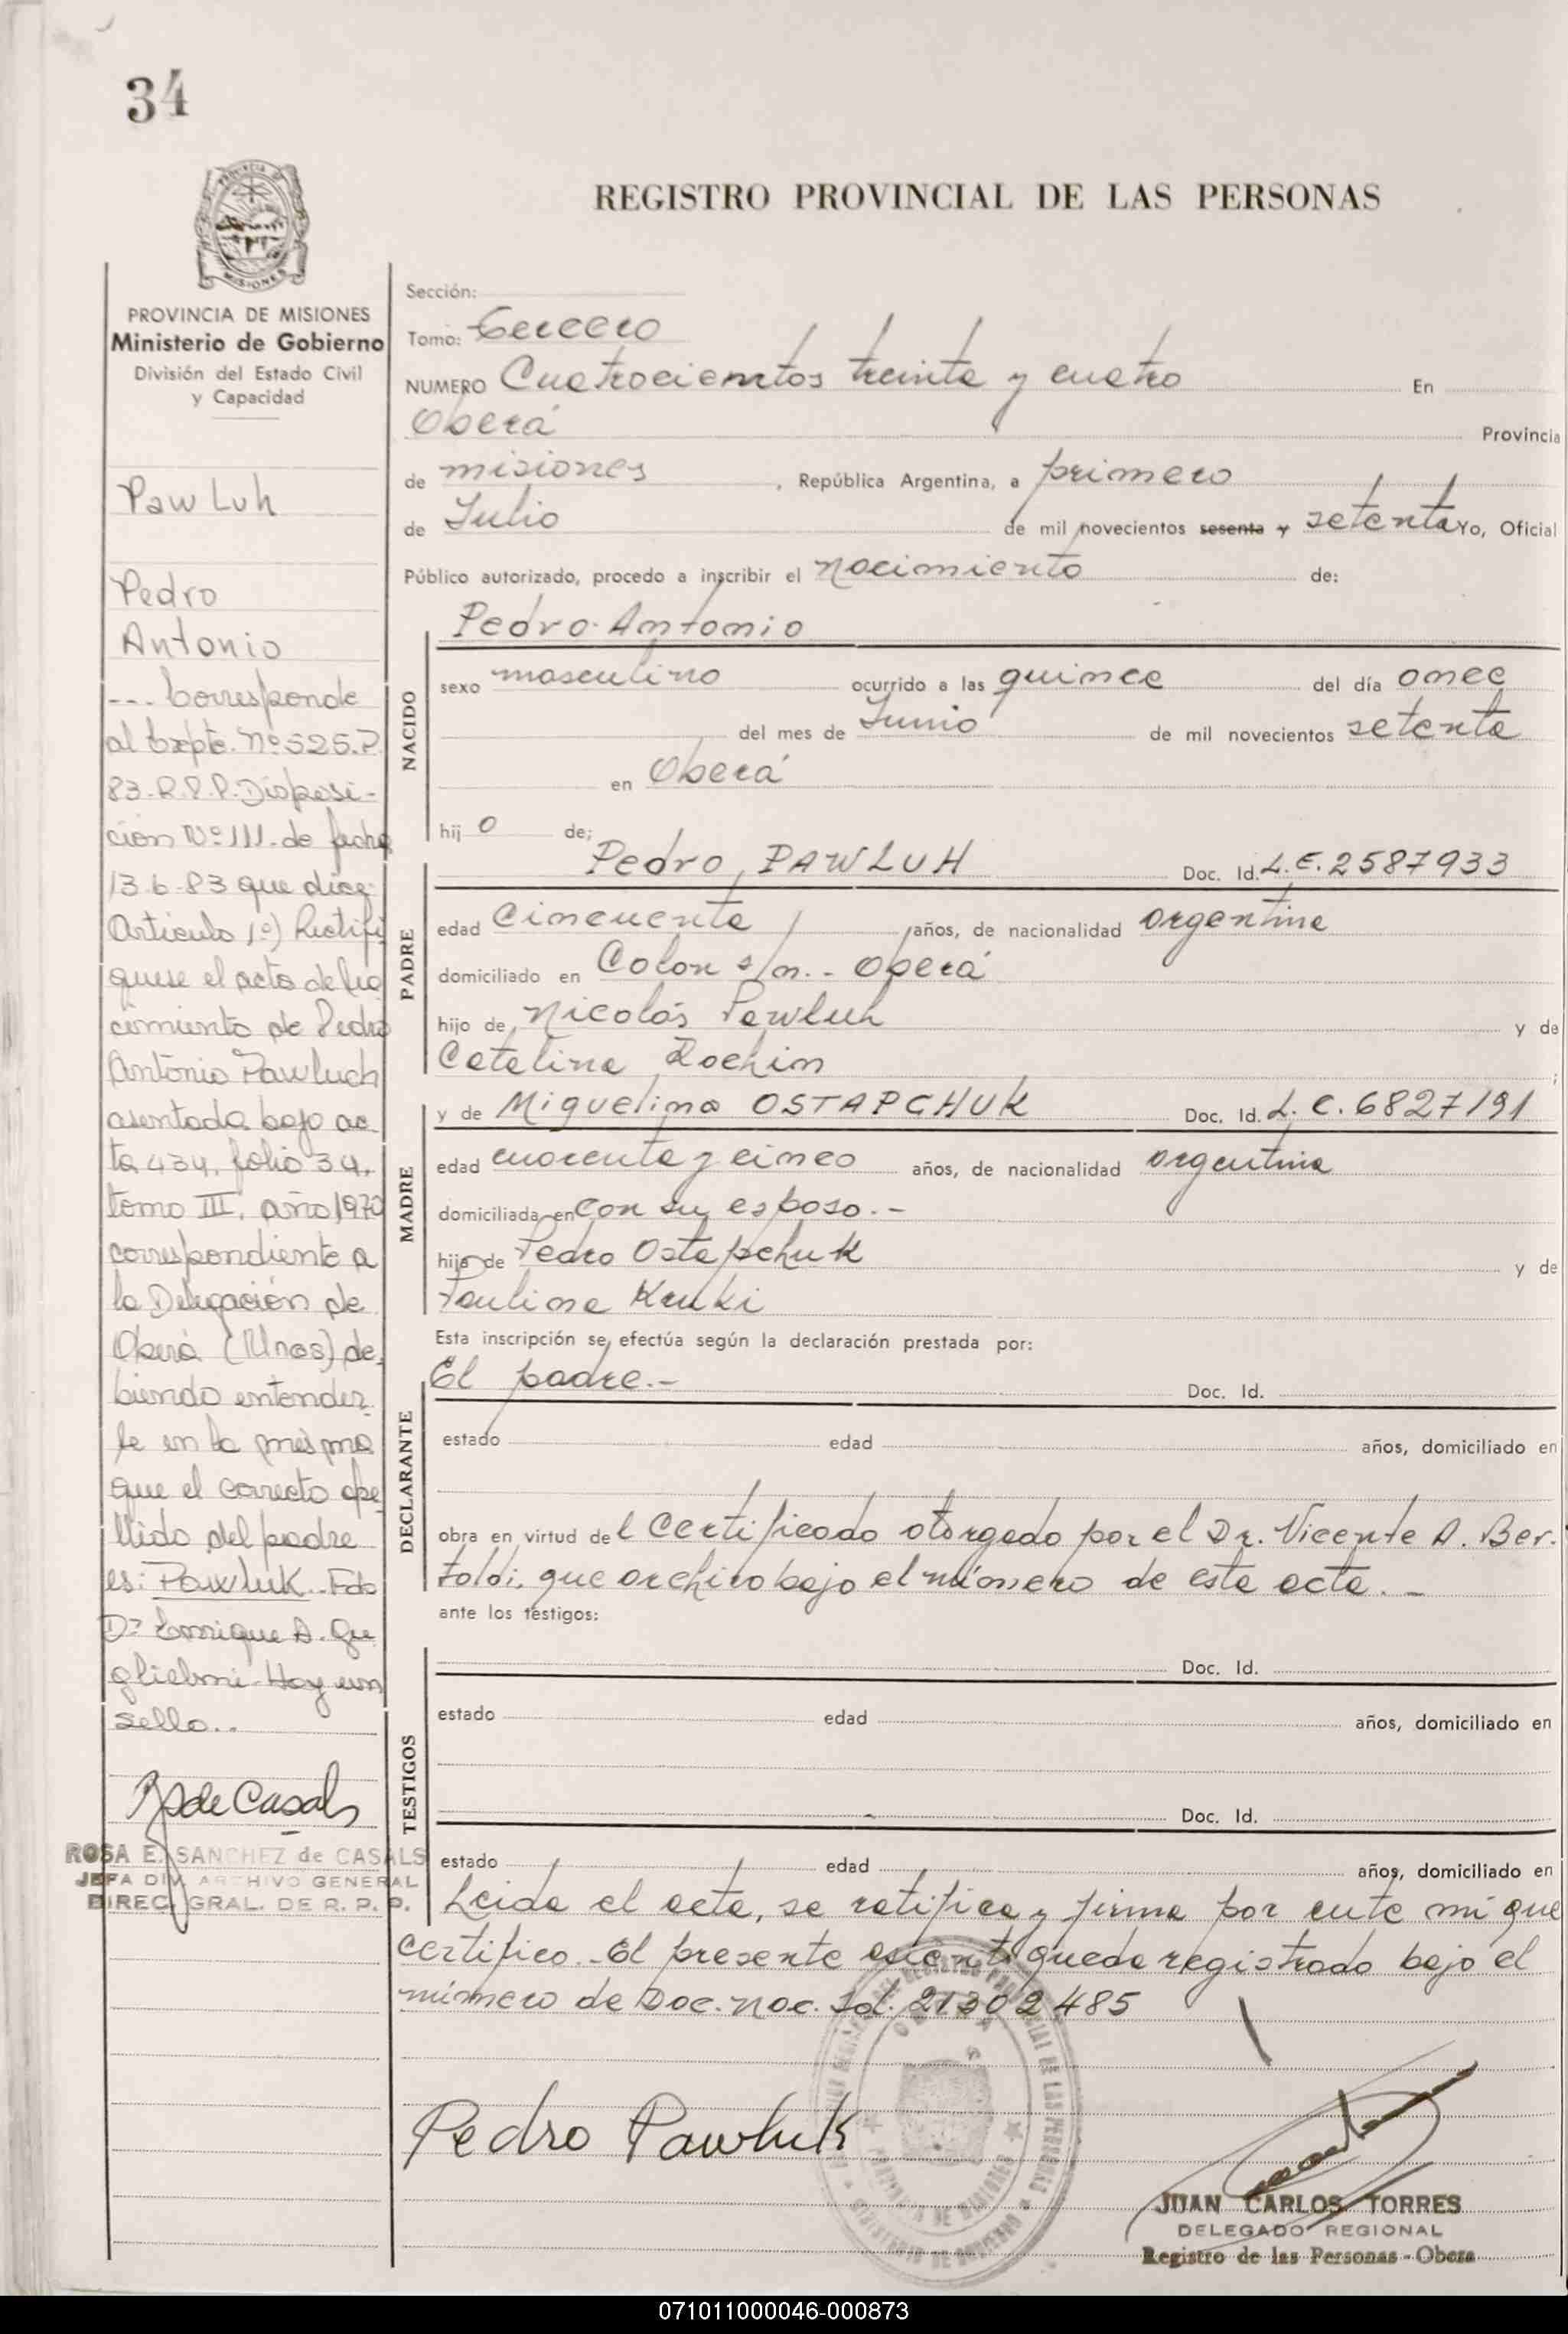 34
PROVINCIA DE MISIONES
Ministerio de Gobierno
División del Estado Civil
y Capacidad
Pawluh
Pedro
Antonio
--- Corresponde
al Expte. Nº 525.P.
83-R.P.P. Disposi-
ción Nº 111. de fecha
13-6-83 que dice:
Artículo 1º) Rectifi
quese el acta de na
cimiento de Pedro
Antonio Pawluch
asentada bajo ac
ta 434, folio 34,
tomo III, año 1970
correspondiente a
la Delegación de
Oberá (Mnes) de,
biendo entender
se en la misma
que el correcto ape
llido del padre
es: Pawluk.. Fdo
Dr Enrique A. Gu
glielmi - Hay un
sello..
R S de Casals
ROSA E. SANCHEZ de CASALS
JEFA DIV. ARCHIVO GENERAL
DIREC. GRAL. DE R. P. P.
REGISTRO PROVINCIAL DE LAS PERSONAS
Sección:
Tomo: Tercero
NUMERO Cuatrocientos treinta y cuatro En
Oberá Provincia
de misiones, República Argentina, a primero
de Julio de mil novecientos sesenta y setenta Yo, Oficial
Público autorizado, procedo a inscribir el nacimiento de:
NACIDO
Pedro Antonio
sexo masculino ocurrido a las quince del día once
del mes de Junio de mil novecientos setenta
en Oberá
hij o de;
PADRE
Pedro PAWLUH Doc. Id. L.E. 2587933
edad Cincuenta años, de nacionalidad argentina
domiciliado en Colon s/n.- Oberá
hijo de Nicolás Pawluh y de
Catalina Rochin ;
MADRE
y de Miguelina OSTAPCHUK Doc. Id. L. C. 6827191
edad cuarenta y cinco años, de nacionalidad argentina
domiciliada en con su esposo.-
hija de Pedro Ostapchuk y de
Paulina Kruki
Esta inscripción se efectúa según la declaración prestada por:
DECLARANTE
El padre.- Doc. Id.
estado edad años, domiciliado en
obra en virtud de l Certificado otorgado por el Dr. Vicente A. Ber-
toldi, que archivo bajo el número de esta acta.-
ante los testigos:
TESTIGOS
Doc. Id.
estado edad años, domiciliado en
Doc. Id.
estado edad años, domiciliado en
Leida el acta, se ratifica y firma por ante mí que
certifico.- El presente asiento queda registrado bajo el
número de Doc. nac. Id. 21302485
Pedro Pawluk
JUAN CARLOS TORRES
DELEGADO REGIONAL
Registro de las Personas - Obera
071011000046-000873